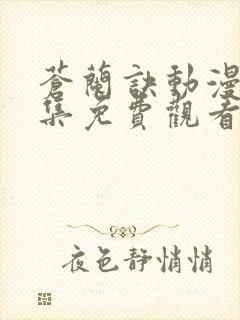 蒼蘭訣動漫
集免費觀看
夜色靜悄悄